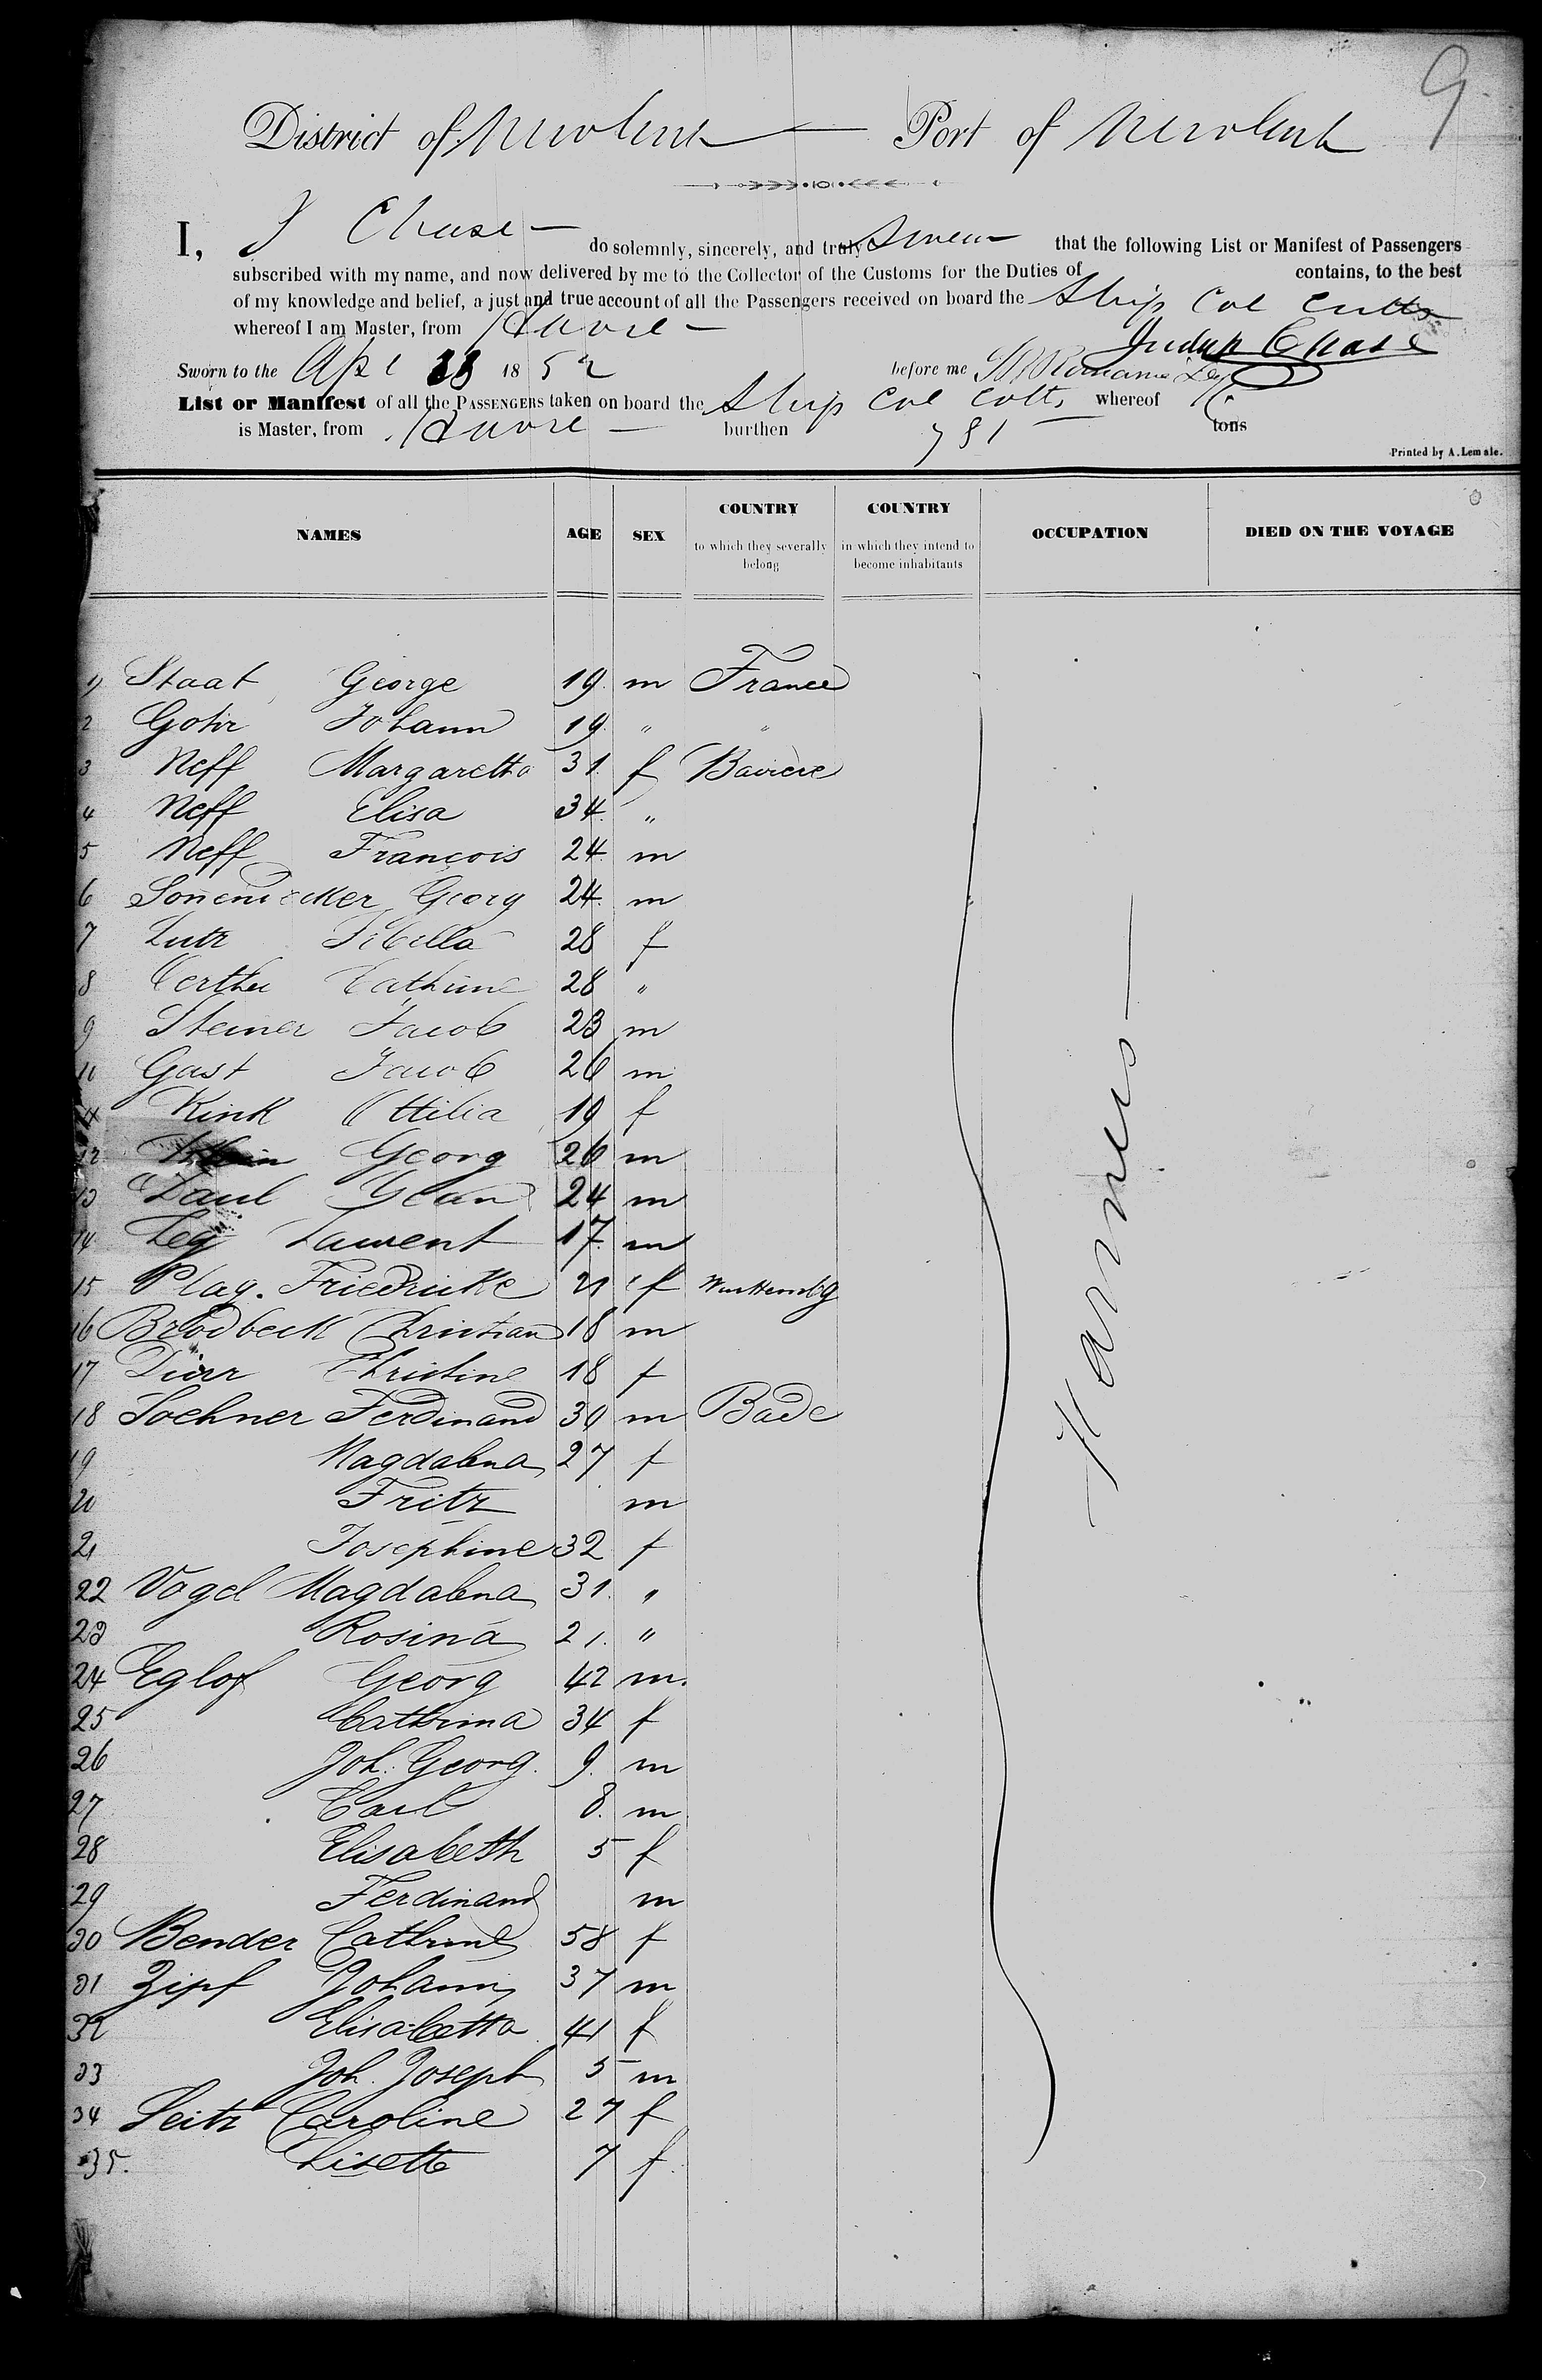 9
District of New Orleans — Port of New Orleans
I, J Chase — do solemnly, sincerely, and truly Swear that the following List or Manifest of Passengers
subscribed with my name, and now delivered by me to the Collector of the Customs for the Duties of contains, to the best
of my knowledge and belief, a just and true account of all the Passengers received on board the Ship Col Cutts
whereof I am Master, from Havre —
Judah Chase
Sworn to the Apl 18 52 before me
List or Manifest of all the PASSENGERS taken on board the Ship Col Cutts whereof
is Master, from Havre — burthen 781 tons
Printed by A. Lemale.
NAMES AGE SEX COUNTRY to which they severally belong COUNTRY in which they intend to become inhabitants OCCUPATION DIED ON THE VOYAGE
1 Staat George 19 m France
2 Johann 19 " "
3 Neff Margaretta 31 f Baviere
4 Neff Elisa 34 "
5 Neff François 24 m
6 Georg 24 m
7 Lutz Sibilla 28 f
8 Cathrine 28 "
9 Steiner Jacob 23 m
10 Gast Jacob 26 m
11 Kink Ottilia 19 f
12 Georg 26 m
13 Daul Jean 24 m
14 Leg Laurent 17 m
15 Plag. Friedricke 21 f Wurttembg
16 Brodbeck Christian 18 m
17 Christine 18 f
18 Sochner Ferdinand 30 m Bade
19 Magdalena 27 f
20 Fritz m
21 Josephine 32 f
22 Vogel Magdalena 31 "
23 Rosina 21 "
24 Eglof Georg 42 m
25 Cathrina 34 f
26 Joh. Georg. 9 m
27 Carl 8 m
28 Elisabeth 5 f
29 Ferdinand m
30 Bender Cathrine 58 f
31 Zipf Johann 37 m
32 Elisabetta 41 f
33 Joh. Joseph 5 m
34 Seitz Caroline 27 f
35. Lisette 7 f